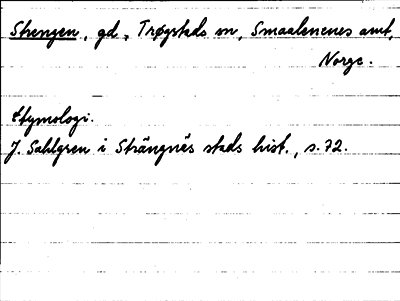 Strengen, gd, Trøgstads sn, Smaalenenes amt,
Norge.
Etymologi.
J. Sahlgren i Strängnäs stads hist., s. 72.